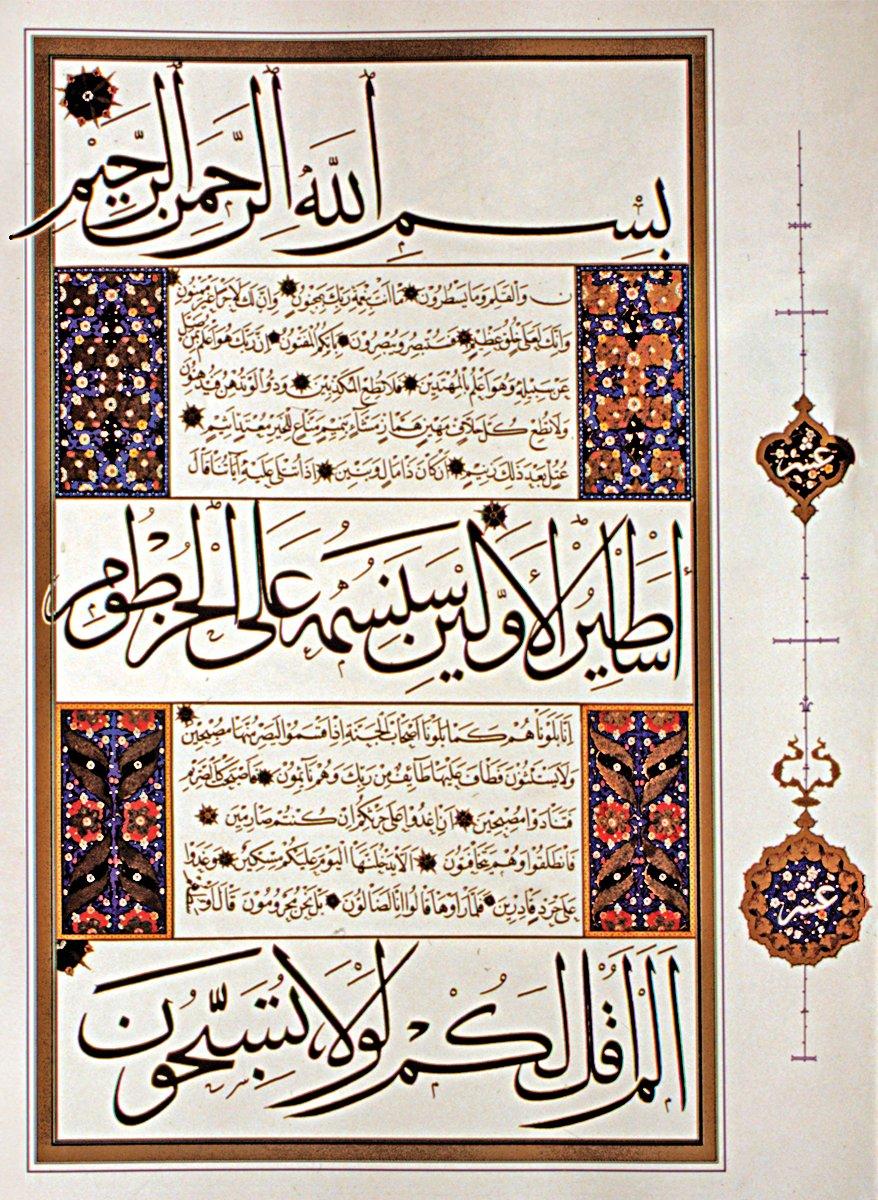 بِسْمِ اللَّهِ الرَّحْمٰنِ الرَّحِيْمِ
ن وَالْقَلَمِ وَمَا يَسْطُرُونَ مَا أَنْتَ بِنِعْمَةِ رَبِّكَ بِمَجْنُونٍ وَإِنَّ لَكَ لَأَجْرًا غَيْرَ مَمْنُونٍ
وَإِنَّكَ لَعَلَى خُلُقٍ عَظِيمٍ فَسَتُبْصِرُ وَيُبْصِرُونَ بِأَيِّكُمُ الْمَفْتُونُ إِنَّ رَبَّكَ هُوَ أَعْلَمُ بِمَنْ ضَلَّ
عَنْ سَبِيلِهِ وَهُوَ أَعْلَمُ بِالْمُهْتَدِينَ فَلَا تُطِعِ الْمُكَذِّبِينَ وَدُّوا لَوْ تُدْهِنُ فَيُدْهِنُونَ
وَلَا تُطِعْ كُلَّ حَلَّافٍ مَهِينٍ هَمَّازٍ مَشَّاءٍ بِنَمِيمٍ مَنَّاعٍ لِلْخَيْرِ مُعْتَدٍ أَثِيمٍ
عُتُلٍّ بَعْدَ ذَلِكَ زَنِيمٍ أَنْ كَانَ ذَا مَالٍ وَبَنِينَ إِذَا تُتْلَى عَلَيْهِ آيَاتُنَا قَالَ
أَسَاطِيرُ الْأَوَّلِينَ سَنَسِمُهُ عَلَى الْخُرْطُومِ
إِنَّا بَلَوْنَاهُمْ كَمَا بَلَوْنَا أَصْحَابَ الْجَنَّةِ إِذْ أَقْسَمُوا لَيَصْرِمُنَّهَا مُصْبِحِينَ
وَلَا يَسْتَثْنُونَ فَطَافَ عَلَيْهَا طَائِفٌ مِنْ رَبِّكَ وَهُمْ نَائِمُونَ فَأَصْبَحَتْ كَالصَّرِيمِ
فَتَنَادَوْا مُصْبِحِينَ أَنِ اغْدُوا عَلَى حَرْثِكُمْ إِنْ كُنْتُمْ صَارِمِينَ
فَانْطَلَقُوا وَهُمْ يَتَخَافَتُونَ أَنْ لَا يَدْخُلَنَّهَا الْيَوْمَ عَلَيْكُمْ مِسْكِينٌ وَغَدَوْا
عَلَى حَرْدٍ قَادِرِينَ فَلَمَّا رَأَوْهَا قَالُوا إِنَّا لَضَالُّونَ بَلْ نَحْنُ مَحْرُومُونَ قَالَ أَوْسَطُهُمْ
أَلَمْ أَقُلْ لَكُمْ لَوْلَا تُسَبِّحُونَ
عشر
عشر